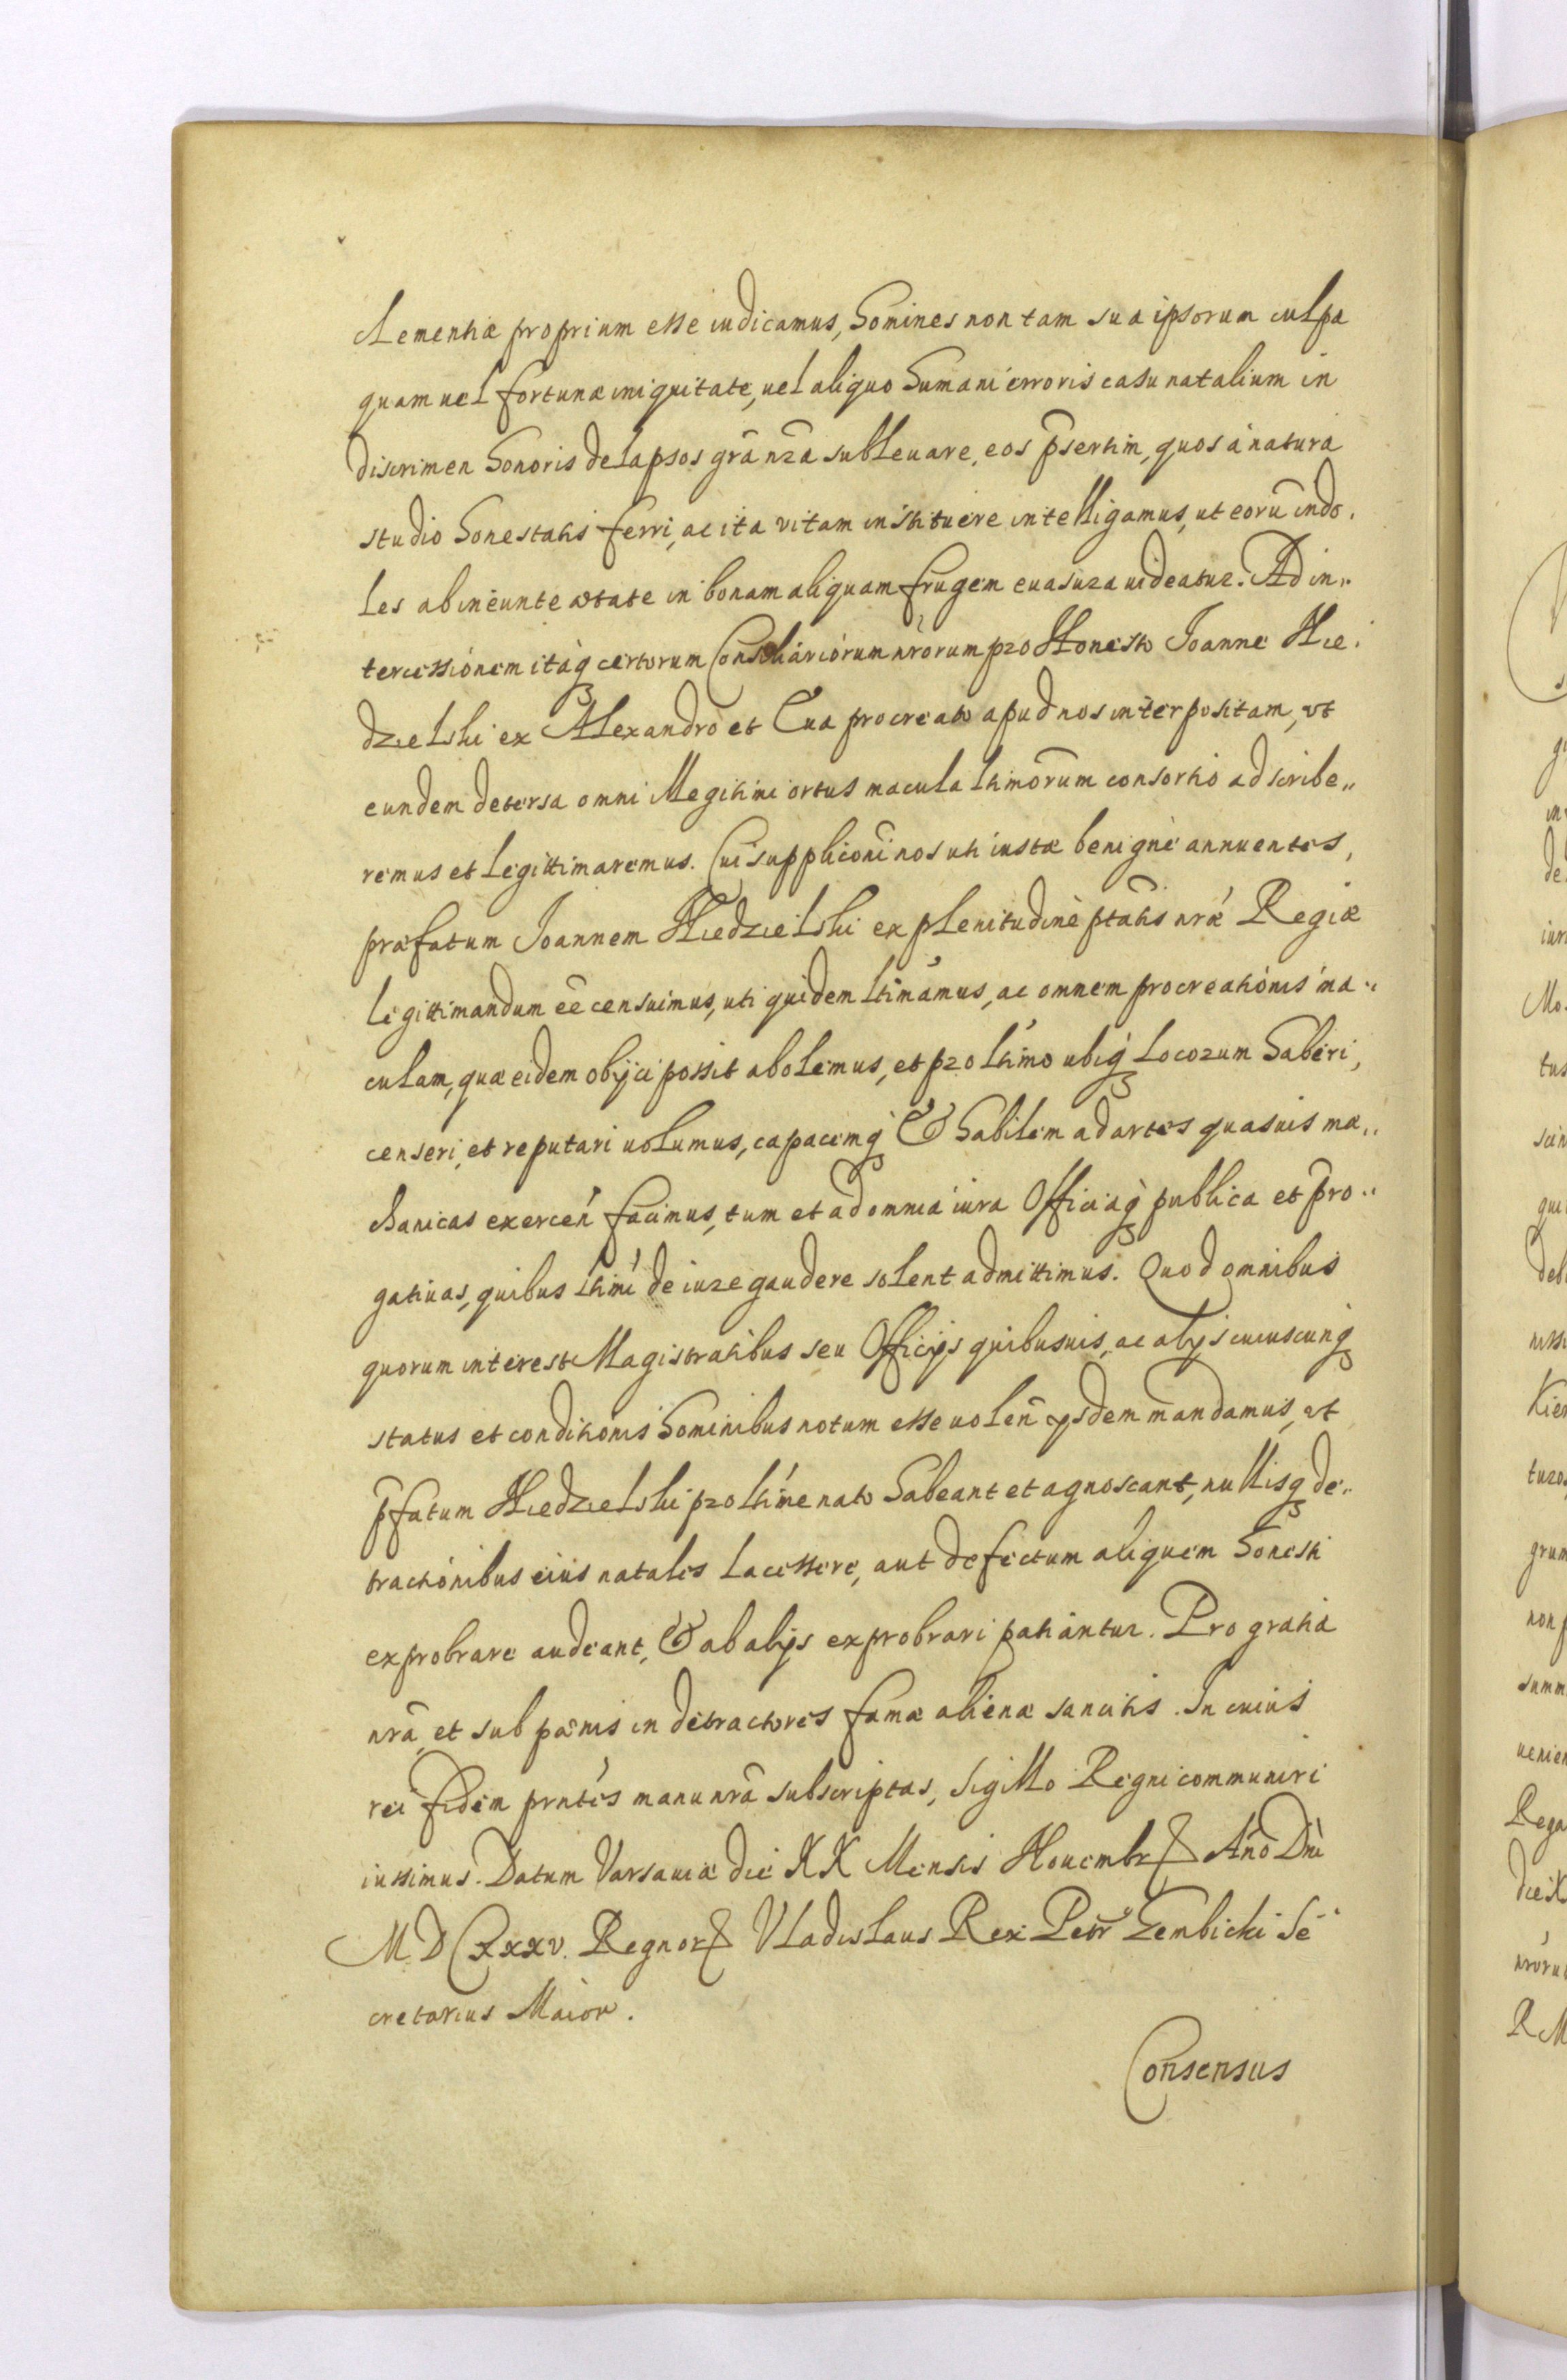 clementiæ proprium esse iudicamus, homines non tam sua ipsorum culpa
quam uel fortunæ iniquitate, uel aliquo humani erroris casu natalium in
discrimen honoris delapsos grã nrã subleuare, eos p̃sertim, quos à natura
studio honestatis ferri, ac ita vitam instituere intelligamus, ut eorũ indo„
les ab ineunte ætate in bonam aliquam frugem euasura uideatur. Ad in„
tercessionem itaq; certorum Consiliariorum nrorum pro Honesto Joanne Nie„
dzielski ex Alexandro et Eua procreato apud nos interpositam, vt
eundem detersa omni illegitimi ortus macula ltimorum consortio adscribe„
remus et legittimaremus. Cui suppliconi nos uti iustæ benignè annuentes,
præfatum Joannem Niedzielski ex plenitudine ptatis nræ Regiæ
legittimandum ẽe censuimus, uti quidem ltimamus, ac omnem procreationis ma„
culam, quæ eidem obijci possit abolemus, et pro ltimo ubiq; locorum haberi,
censeri, et reputari uolumus, capacemq; & habilem ad artes quasuis me„
chanicas exercen̄ facimus, tum et ad omnia iura Officiaq; publica et p̃ro„
gatiuas, quibus ltimi de iure gaudere solent admittimus. Quod omnibus
quorum interest Magistratibus seu Officijs quibusuis, ac alijs cuiuscunq;
status et conditionis hominibus notum esse uolen̄ ijsdem mandamus, vt
p̃fatum Niedzielski pro ltime nato habeant et agnoscant, nullisq; de„
tractionibus eius natales lacessere, aut defectum aliquem honesti
exprobrare audeant, & ab alijs exprobrari patiantur. Pro gratia
nrã, et sub pœnis in detractores famæ alienæ sancitis. In cuius
rei fidem prntes manu nrã subscriptas, sigillo Regni communiri
iussimus. Datum Varsauiæ die XX Mensis Nouembr Año Dni
MDCXXXV. Regnor Vladislaus Rex Petr Gembicki Se
cretarius Maior.
Consensus